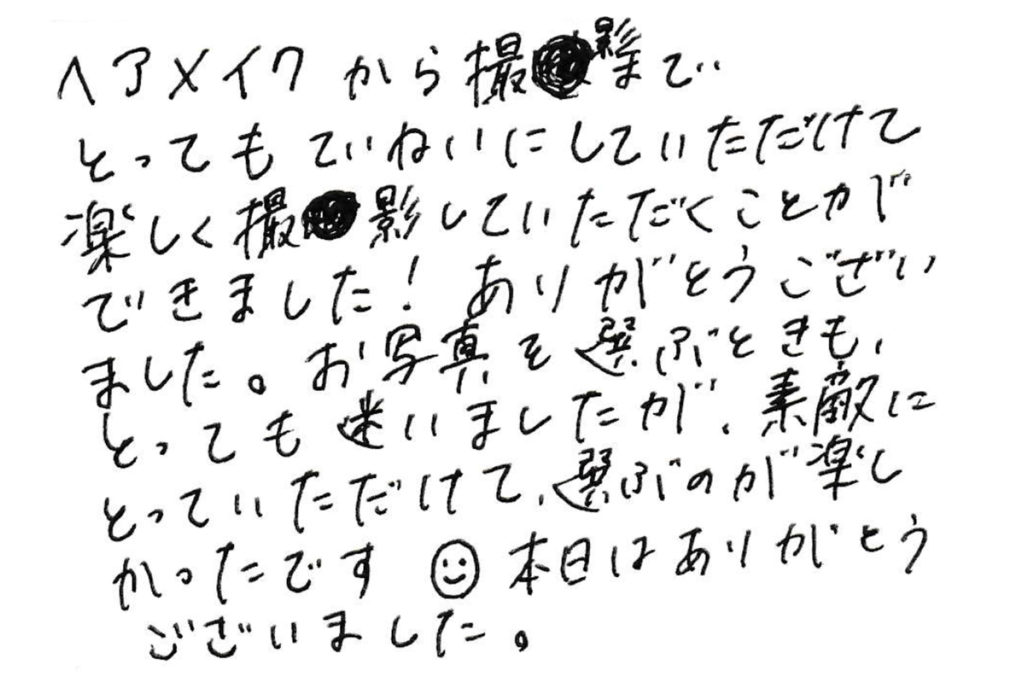 ヘアメイクから撮影まで
とってもていねいにしていただけて
楽しく撮影していただくことが
できました！ありがとうござい
ました。お写真を選ぶときも、
とっても迷いましたが、素敵に
とっていただけて、選ぶのが楽し
かったです☺本日はありがとう
ございました。